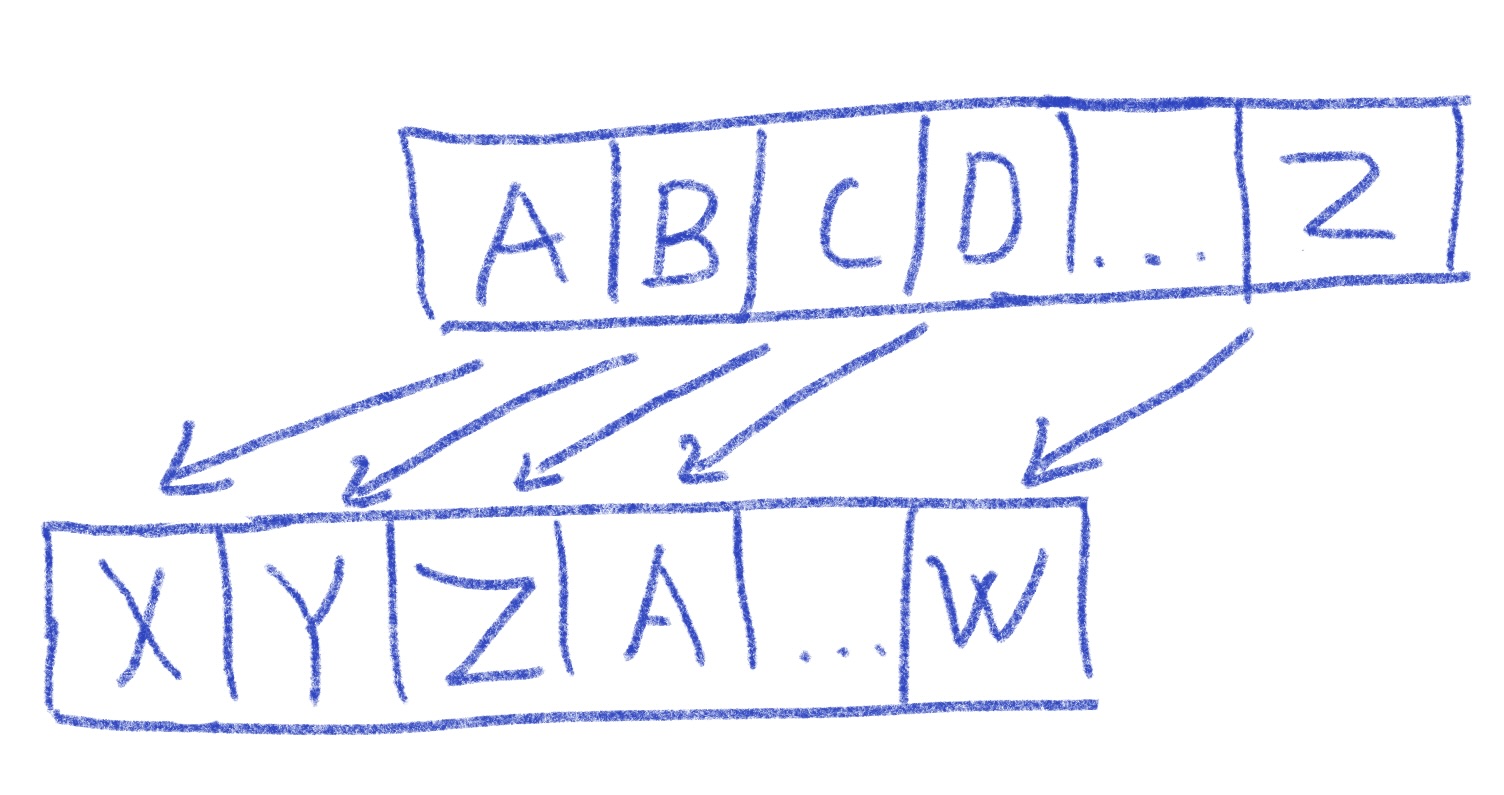 A B C D ... Z
X Y Z A ... W